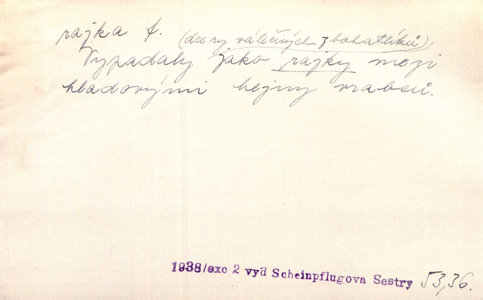 rajka f. (dcery válečných zbohatlíků)
Vypadaly jako rajky mezi
hladovými hejny vrabců.
1938/exc 2 vyd Scheinpflugova Sestry 53,36.